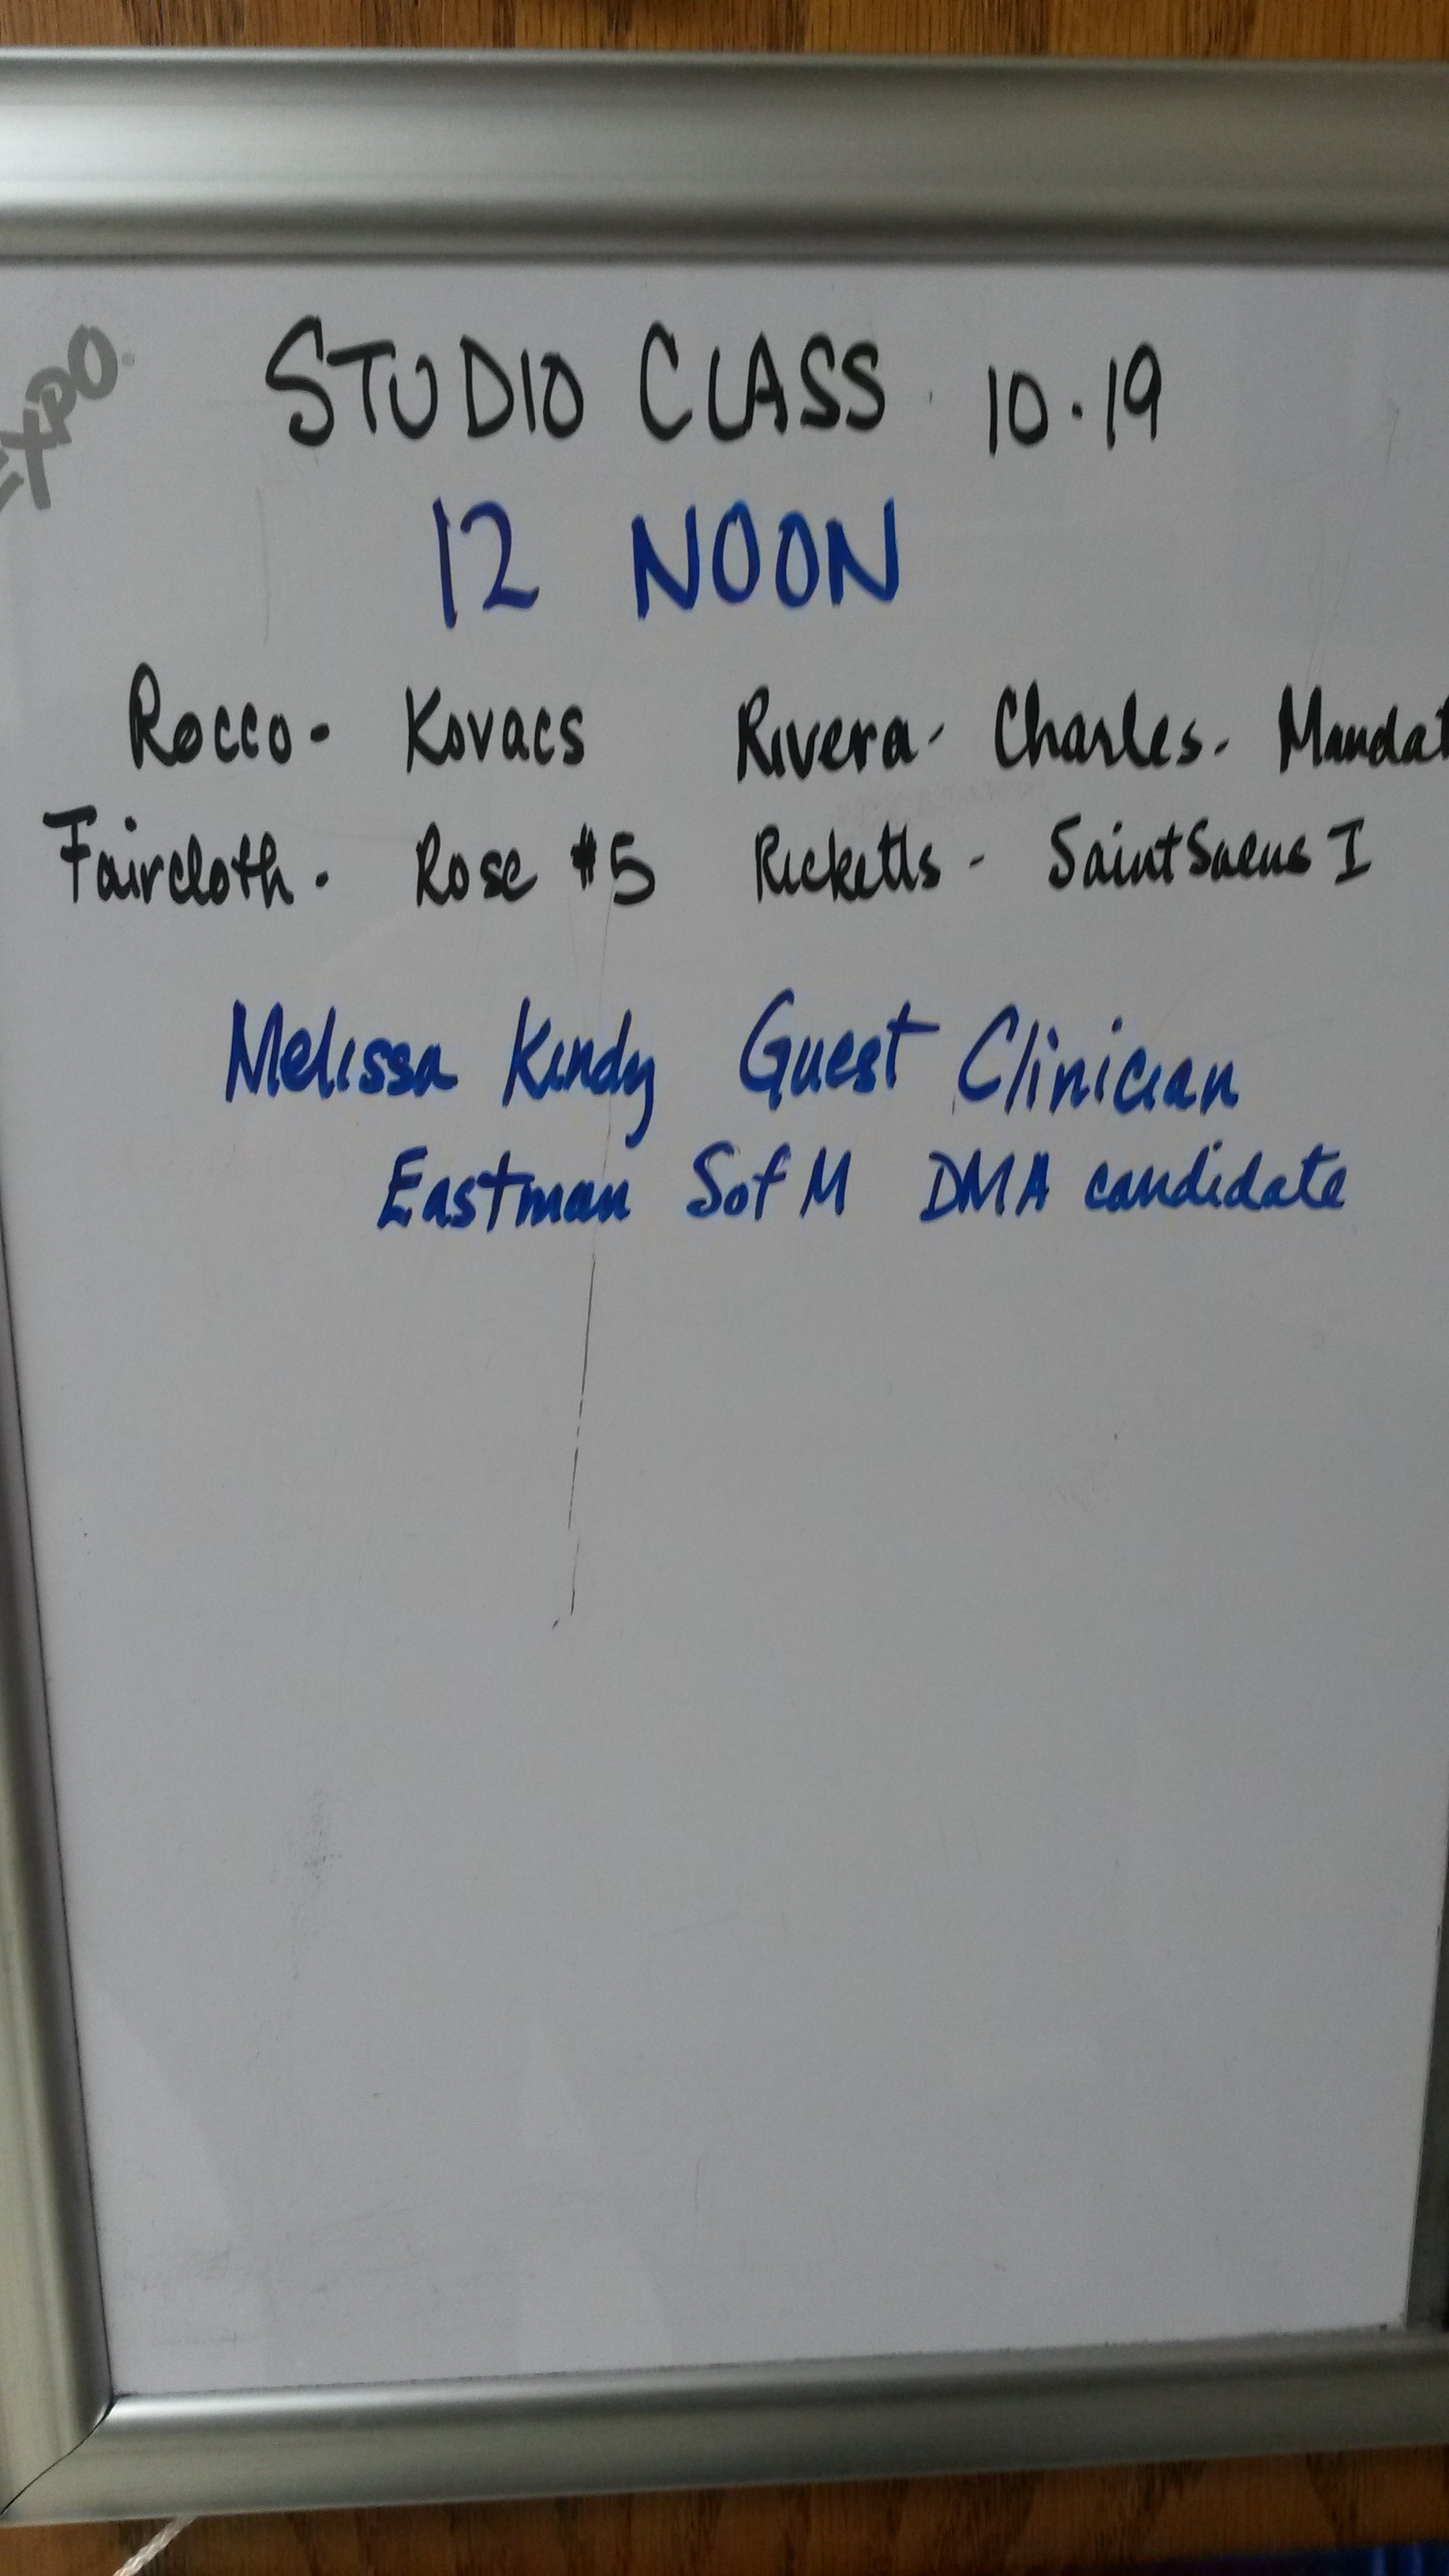 EXPO
STUDIO CLASS 10.19
12 NOON
Rocco - Kovacs Rivera - Charles - Mandat
Faircloth - Rose #5 Ricketts - Saint Saens I
Melissa Kindy Guest Clinician
Eastman S of M DMA candidate